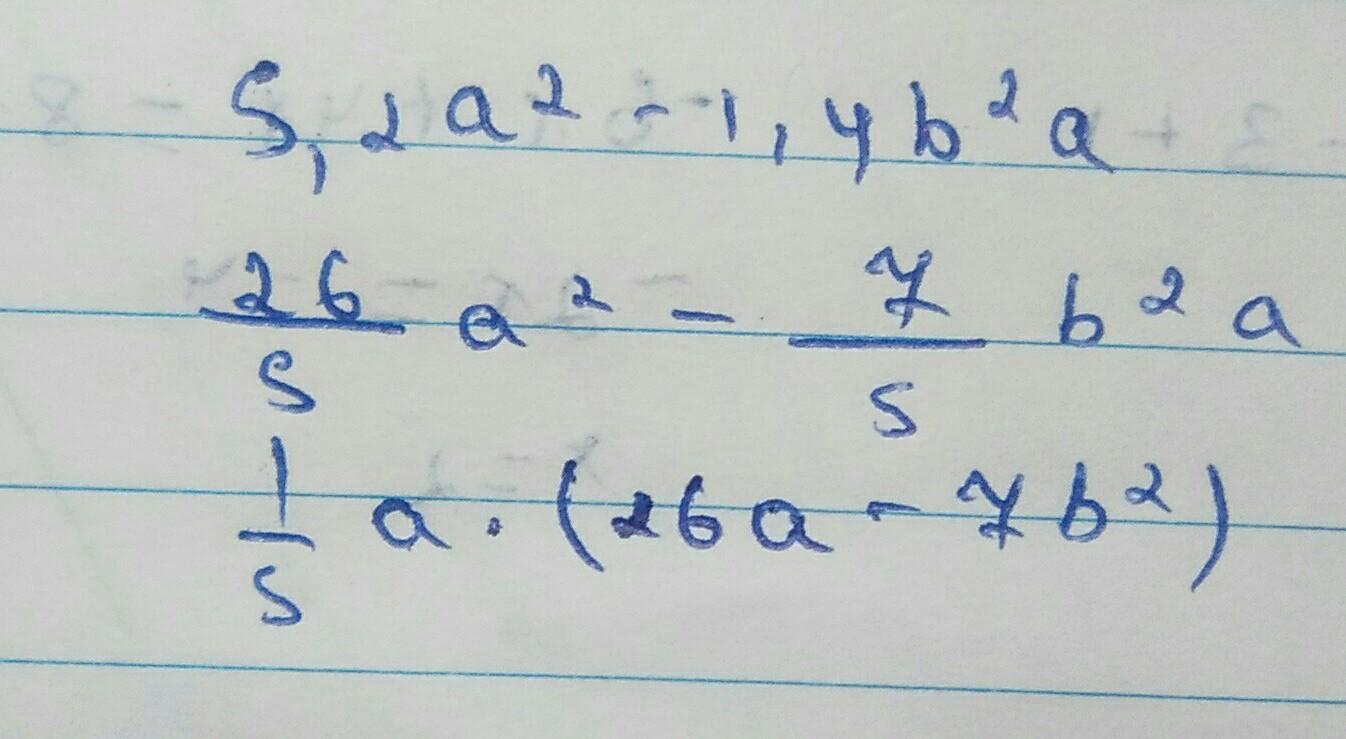 5,2a² - 1,4b²a
26/5 a² - 7/5 b²a
1/5 a · (26a - 7b²)